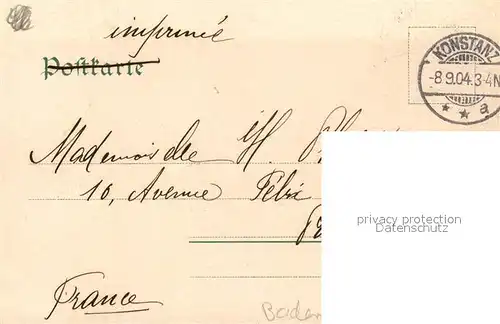 imprimée
Postkarte
KONSTANZ
-8.9.04.3-4N
* * a
Mademoiselle H.
10, Avenue Félix
France
Baden
privacy protection
Datenschutz